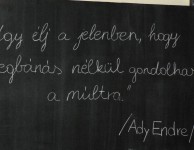 így élj a jelenben, hogy
egbánás nélkül gondolhas
a múltra."
/Ady Endre/